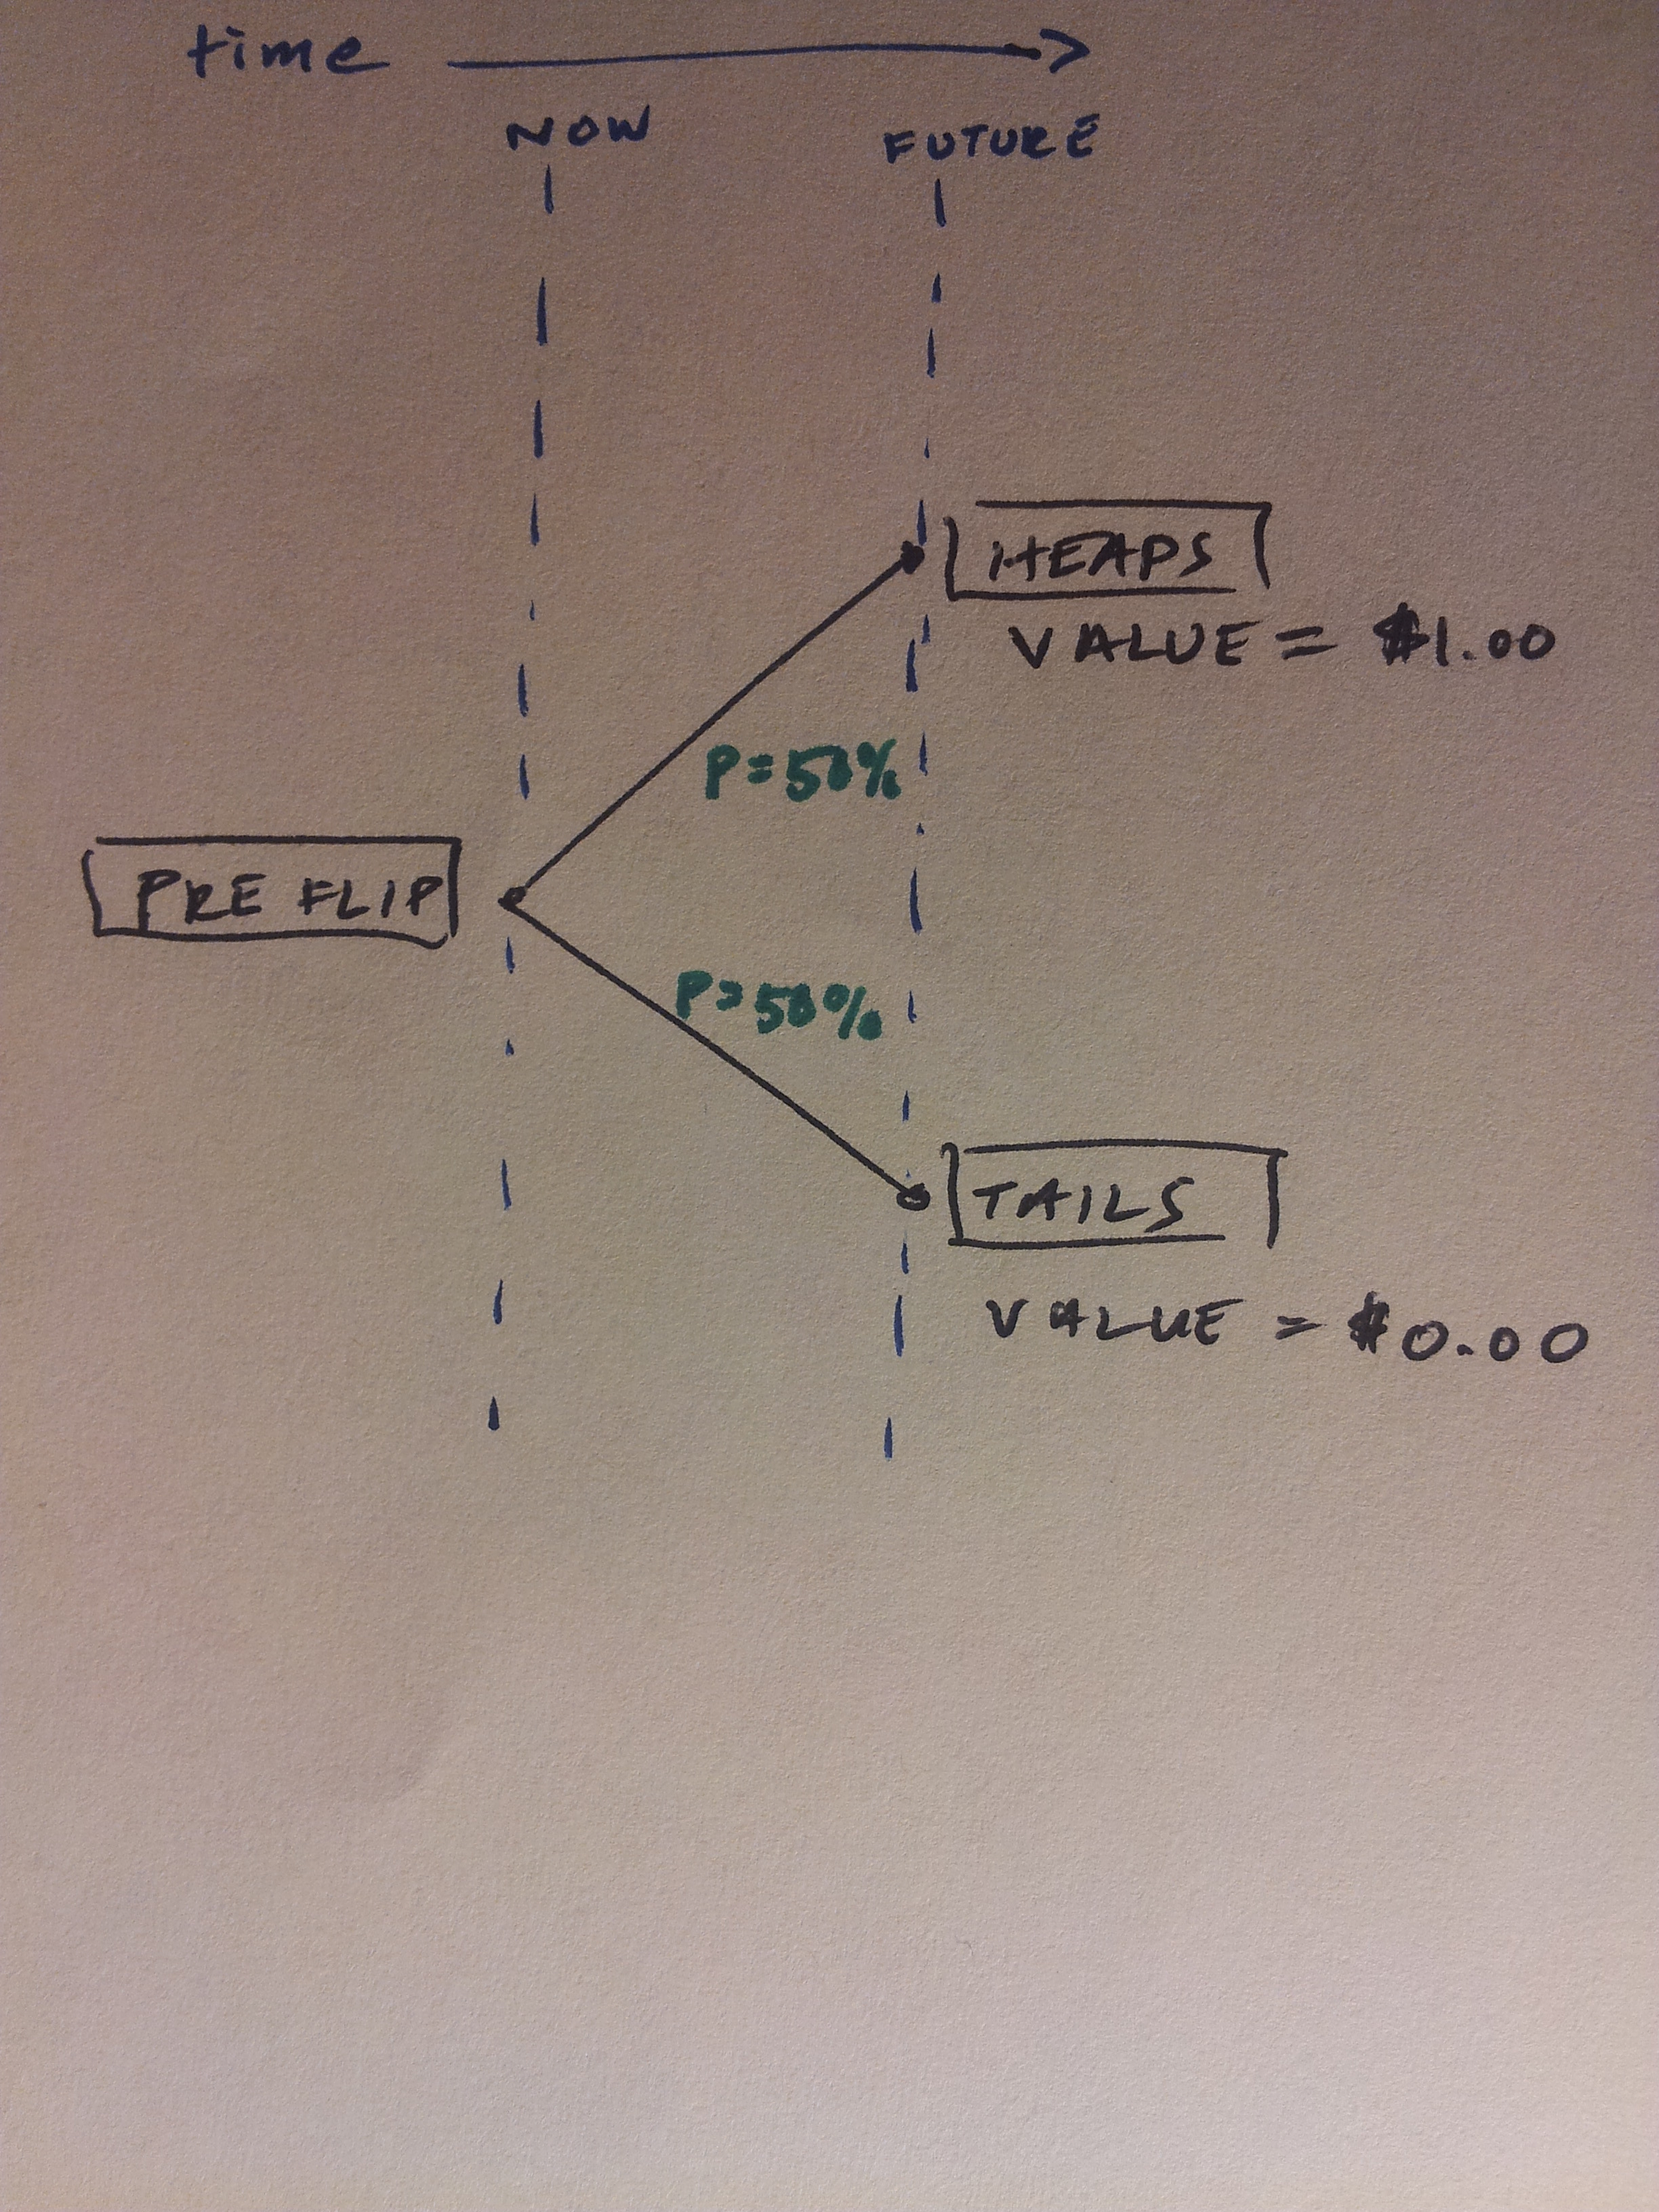 time
NOW FUTURE
HEADS
VALUE = $1.00
P=50%
PRE FLIP
P=50%
TAILS
VALUE = $0.00